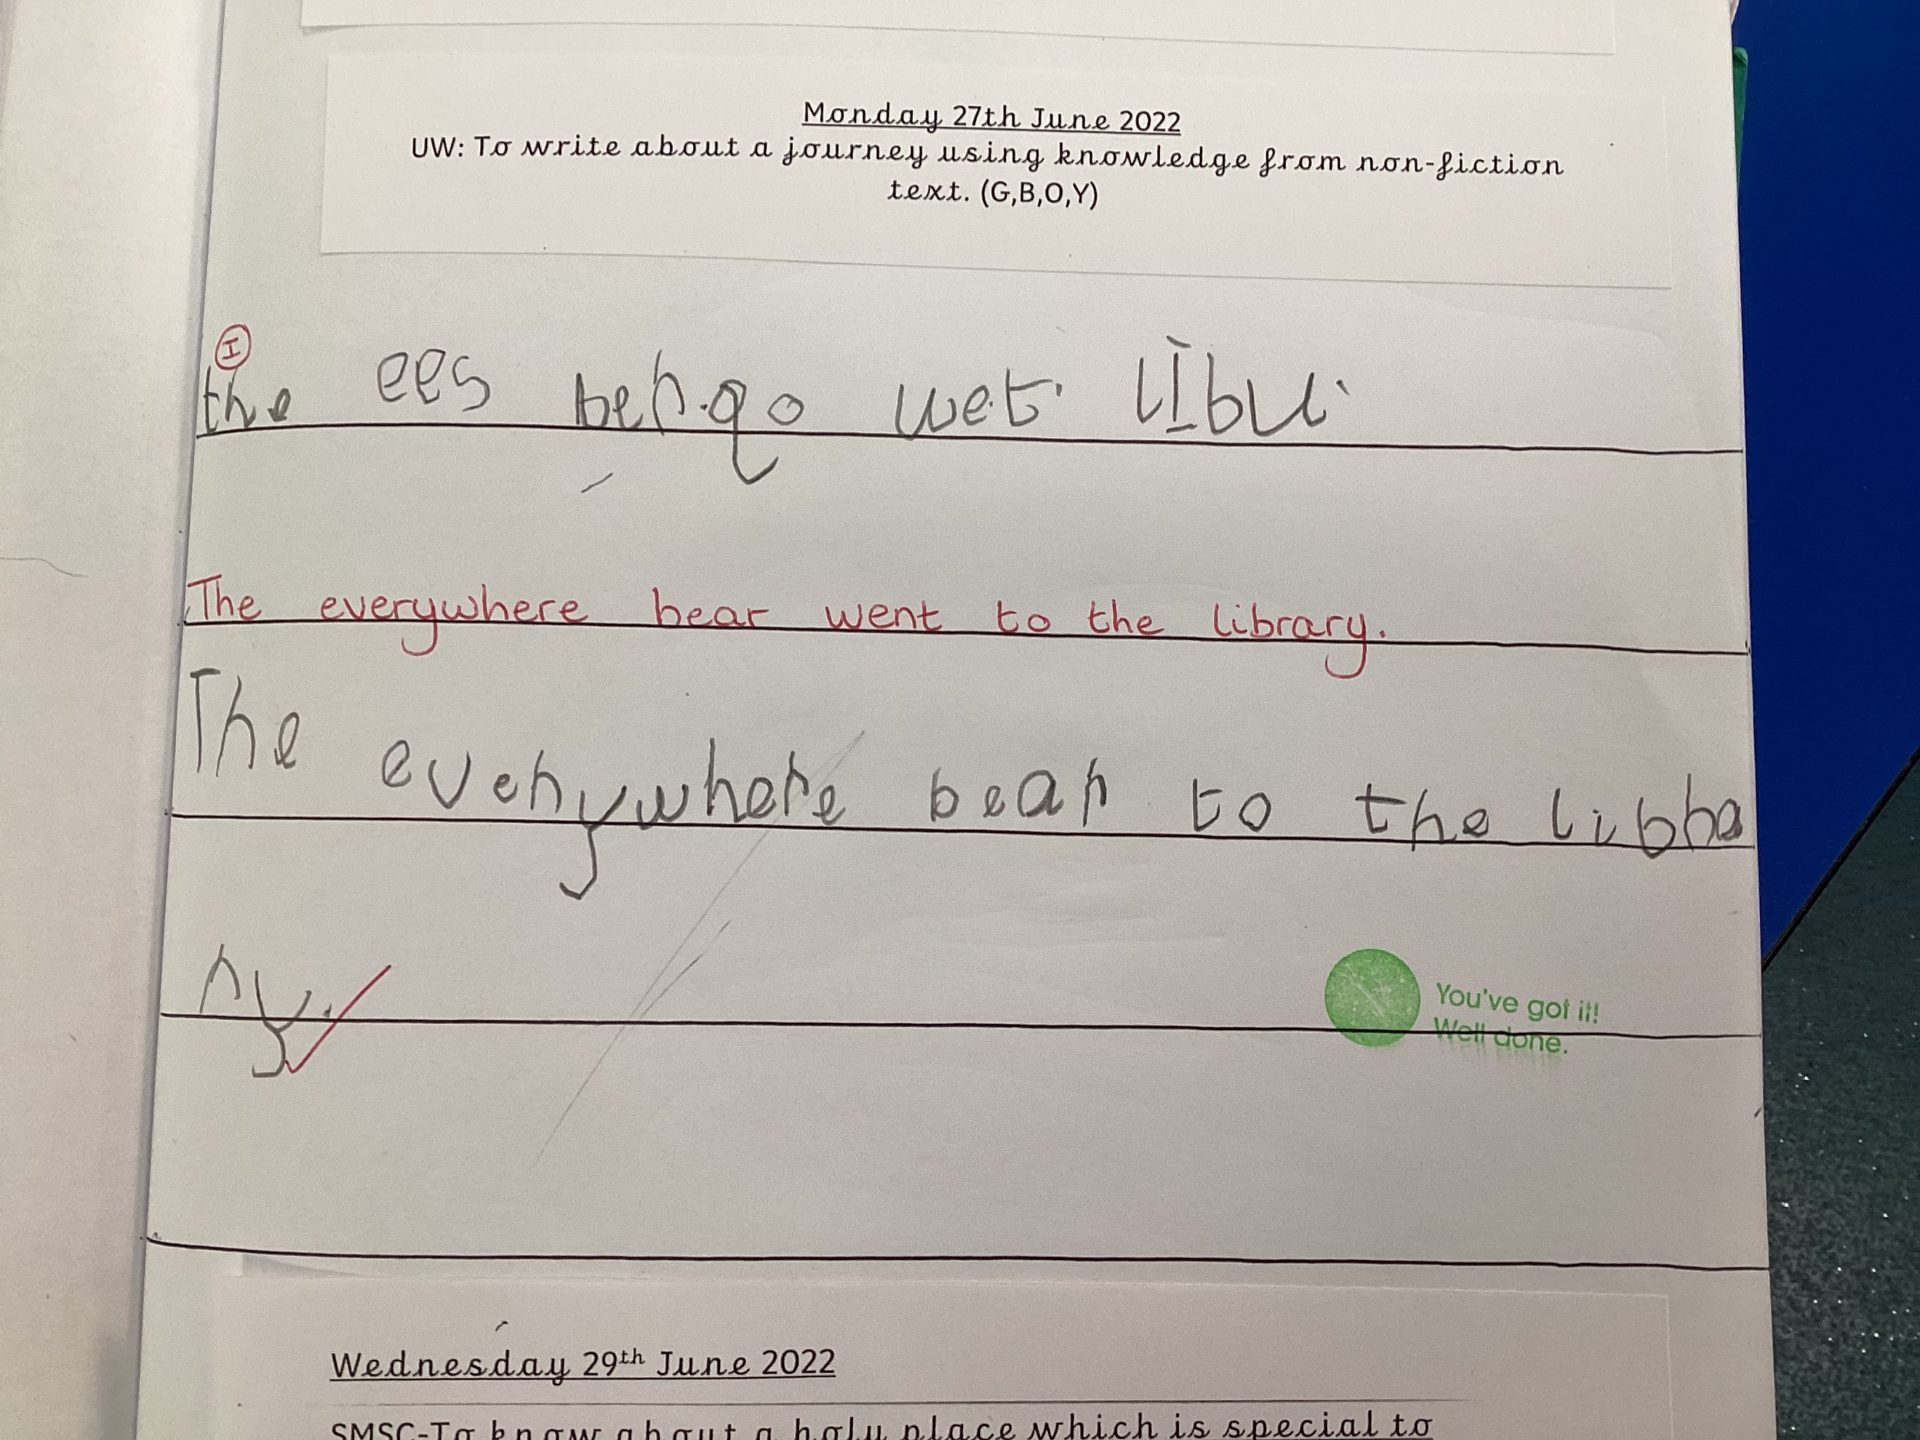 Monday 27th June 2022
UW: To write about a journey using knowledge from non-fiction
text. (G,B,O,Y)
I
the ees wet libu.
The everywhere bear went to the library.
The everywhere bear to the libra
ry.
You've got it!
Well done.
Wednesday 29th June 2022
SMSC-To know about a holy place which is special to